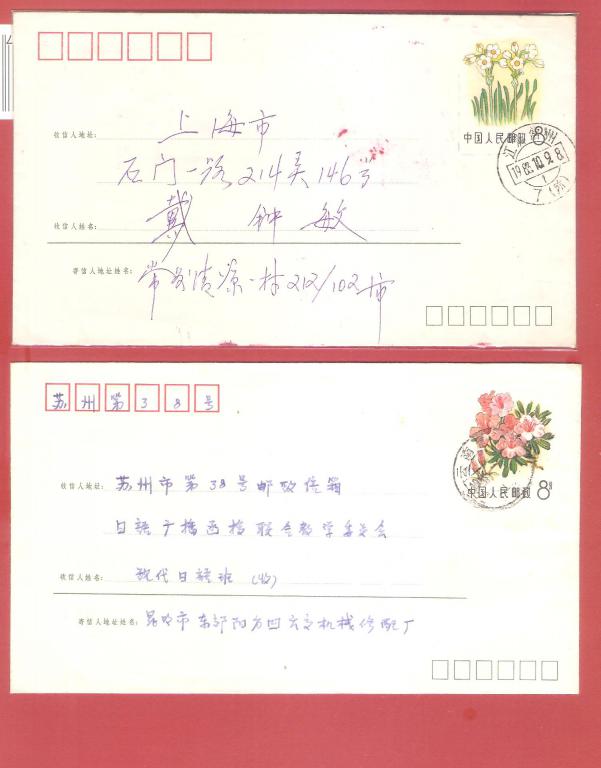 中国人民邮政 8分
江苏 常州
1982.10.9.8
收信人地址: 上海市
石门一路214弄146号
收信人姓名: 戴 钟 敏
寄信人地址姓名: 常州清凉一村212/102 市
苏 州 第 3 8 号
中国人民邮政 8分
收信人地址: 苏州市第38号邮政信箱
日語广播函授联合教学委员会
收信人姓名: 现代日語班 (收)
寄信人地址姓名: 昆明市东郊
机械修配厂